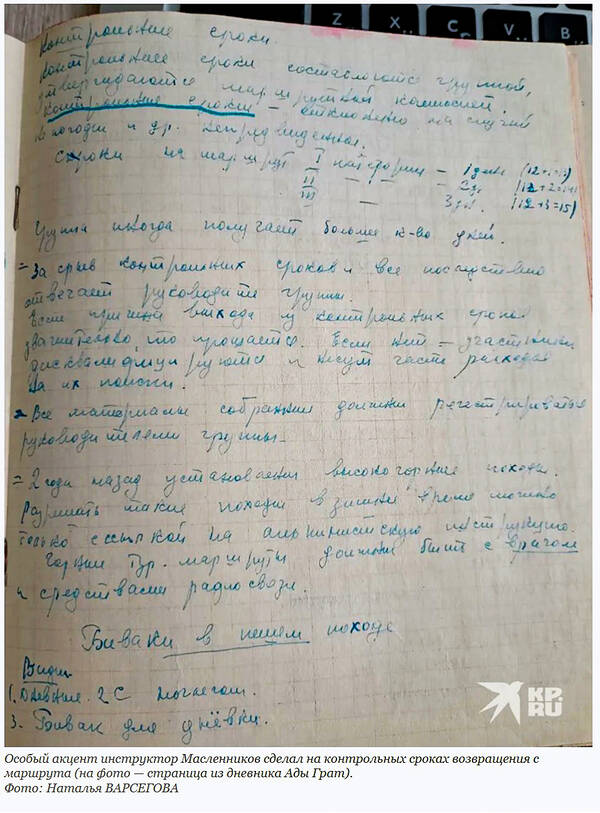 Z X C V B
Контрольные сроки.
Контрольные сроки составляются группой,
утверждаются маршрутной комиссией.
Контрольные сроки – отклонено на случай
непогоды и др. непредвиденн.
Сроки на маршрут I категории – 1 день (12+1=13)
II – " – – 2 дн. (12+2=14)
III – 3 дн. (12+3=15)
Группа иногда получает большее к-во дней.
= За срыв контрольных сроков и все последствия
отвечает руководитель группы.
Если причина выхода из контрольных сроков
значительно, то прощается. Если нет – участники
дисквалифицируются и несут часть расходов
на их поиски.
= Все материалы собрания должны регистрироваться
руководителем группы.
= 2 года назад установлены высокогорные походы.
Разрешать такие походы в зимнее время можно
только ссылкой на альпинистскую инструкцию.
Горные тур. маршруты должны быть с врачом
и средствами радиосвязи.
Биваки в пешем походе
Виды
1. Дневные. 2 С ночлегом.
3. Бивак для днёвки.
KP.RU
Особый акцент инструктор Масленников сделал на контрольных сроках возвращения с
маршрута (на фото — страница из дневника Ады Грат).
Фото: Наталья ВАРСЕГОВА